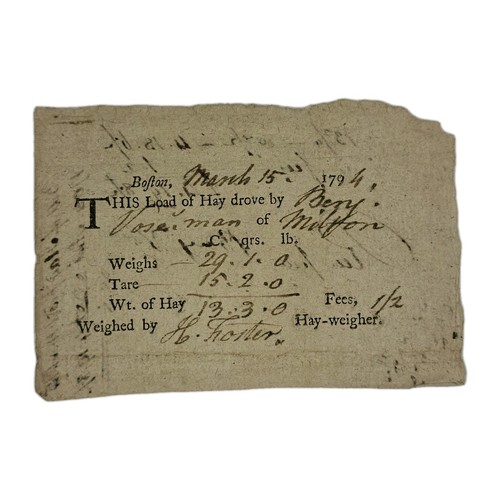 Boſton, March 15. 1794.
THIS Load of Hay drove by Benj
Vose's man of Milton
C. qrs. lb.
Weighs 29. 1. 0
Tare 15. 2. 0
Wt. of Hay 13. 3. 0 Fees, 1/2
Weighed by H. Foster. Hay-weigher.